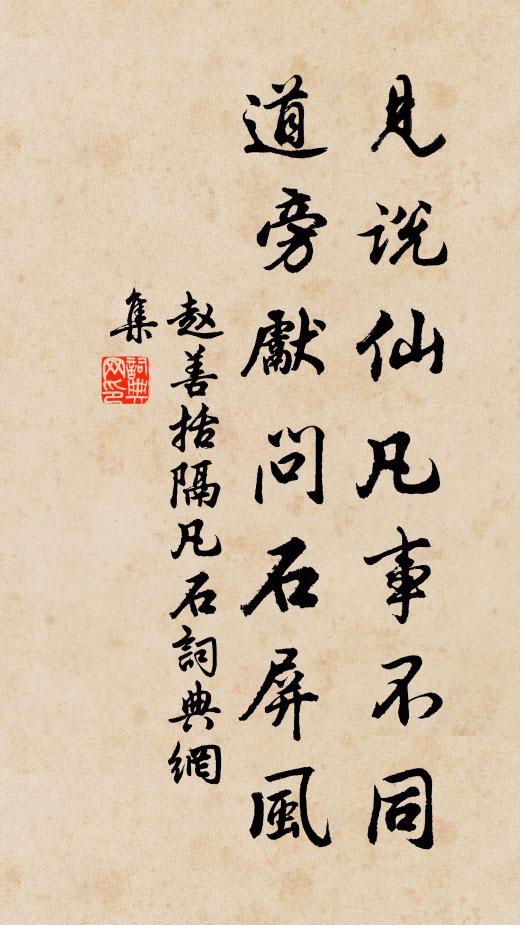 見说仙凡事不同
道旁獻問石屏風
赵善括隔凡石詞典網
集
詞典网印